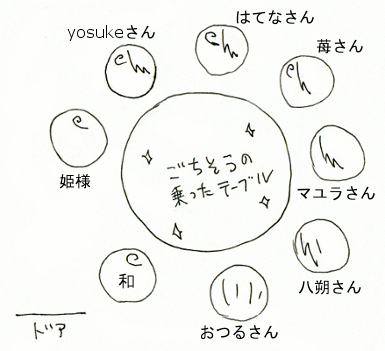 はてなさん
yosukeさん
苺さん
ごちそうの
乗ったテーブル
姫様
マユラさん
和
八朔さん
ドア
おつるさん